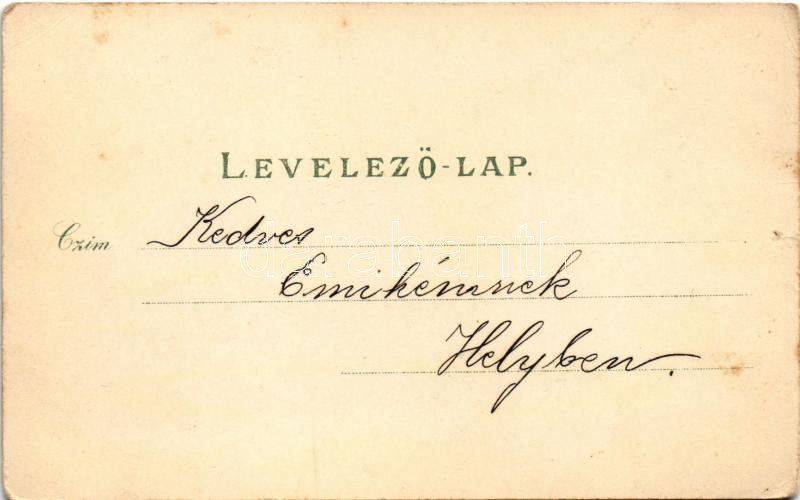 LEVELEZŐ-LAP.
Czim Kedves
Emikémnek
Helyben.
darabanth